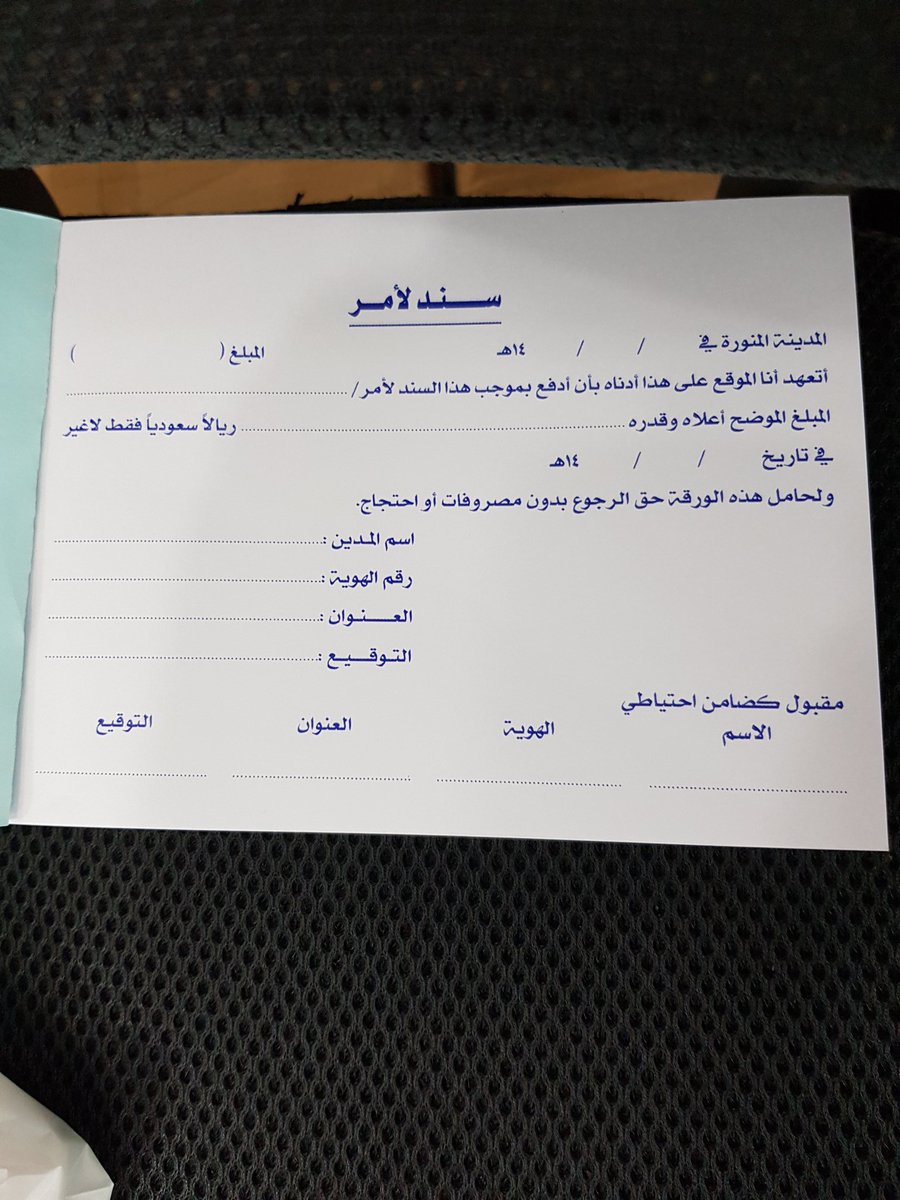 سند لأمر
المدينة المنورة في / / ١٤هـ المبلغ ( )
أتعهد أنا الموقع على هذا أدناه بأن أدفع بموجب هذا السند لأمر/ ........................
المبلغ الموضح أعلاه وقدره ........................ ريالاً سعودياً فقط لاغير
في تاريخ / / ١٤هـ
ولحامل هذه الورقة حق الرجوع بدون مصروفات أو احتجاج.
اسم المدين : ........................
رقم الهوية : ........................
العنوان : ........................
التوقيع : ........................
مقبول كضامن احتياطي
الاسم الهوية العنوان التوقيع
........................ ........................ ........................ ........................